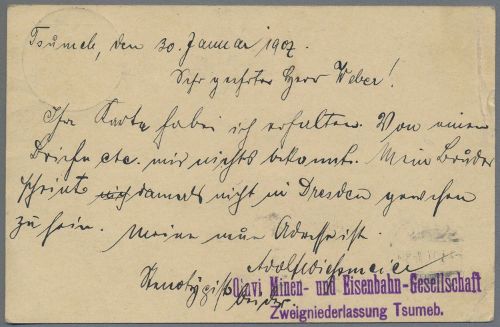 Tsumeb, den 30. Januar 1907.
Sehr geehrter Herr Weber!
Ihre Karte habe ich erhalten. Von einem
Briefe etc. mir nichts bekannt. Mein Bruder
scheint damals nicht in Dresden gewesen
zu sein. Meine neue Adresse ist.
Adolf
Stenotypist bei der
Otavi Minen- und Eisenbahn-Gesellschaft
Zweigniederlassung Tsumeb.